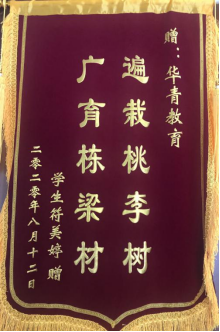 赠：华青教育
遍栽桃李树
广育栋梁材
学生符美婷 赠
二零二零年八月十二日